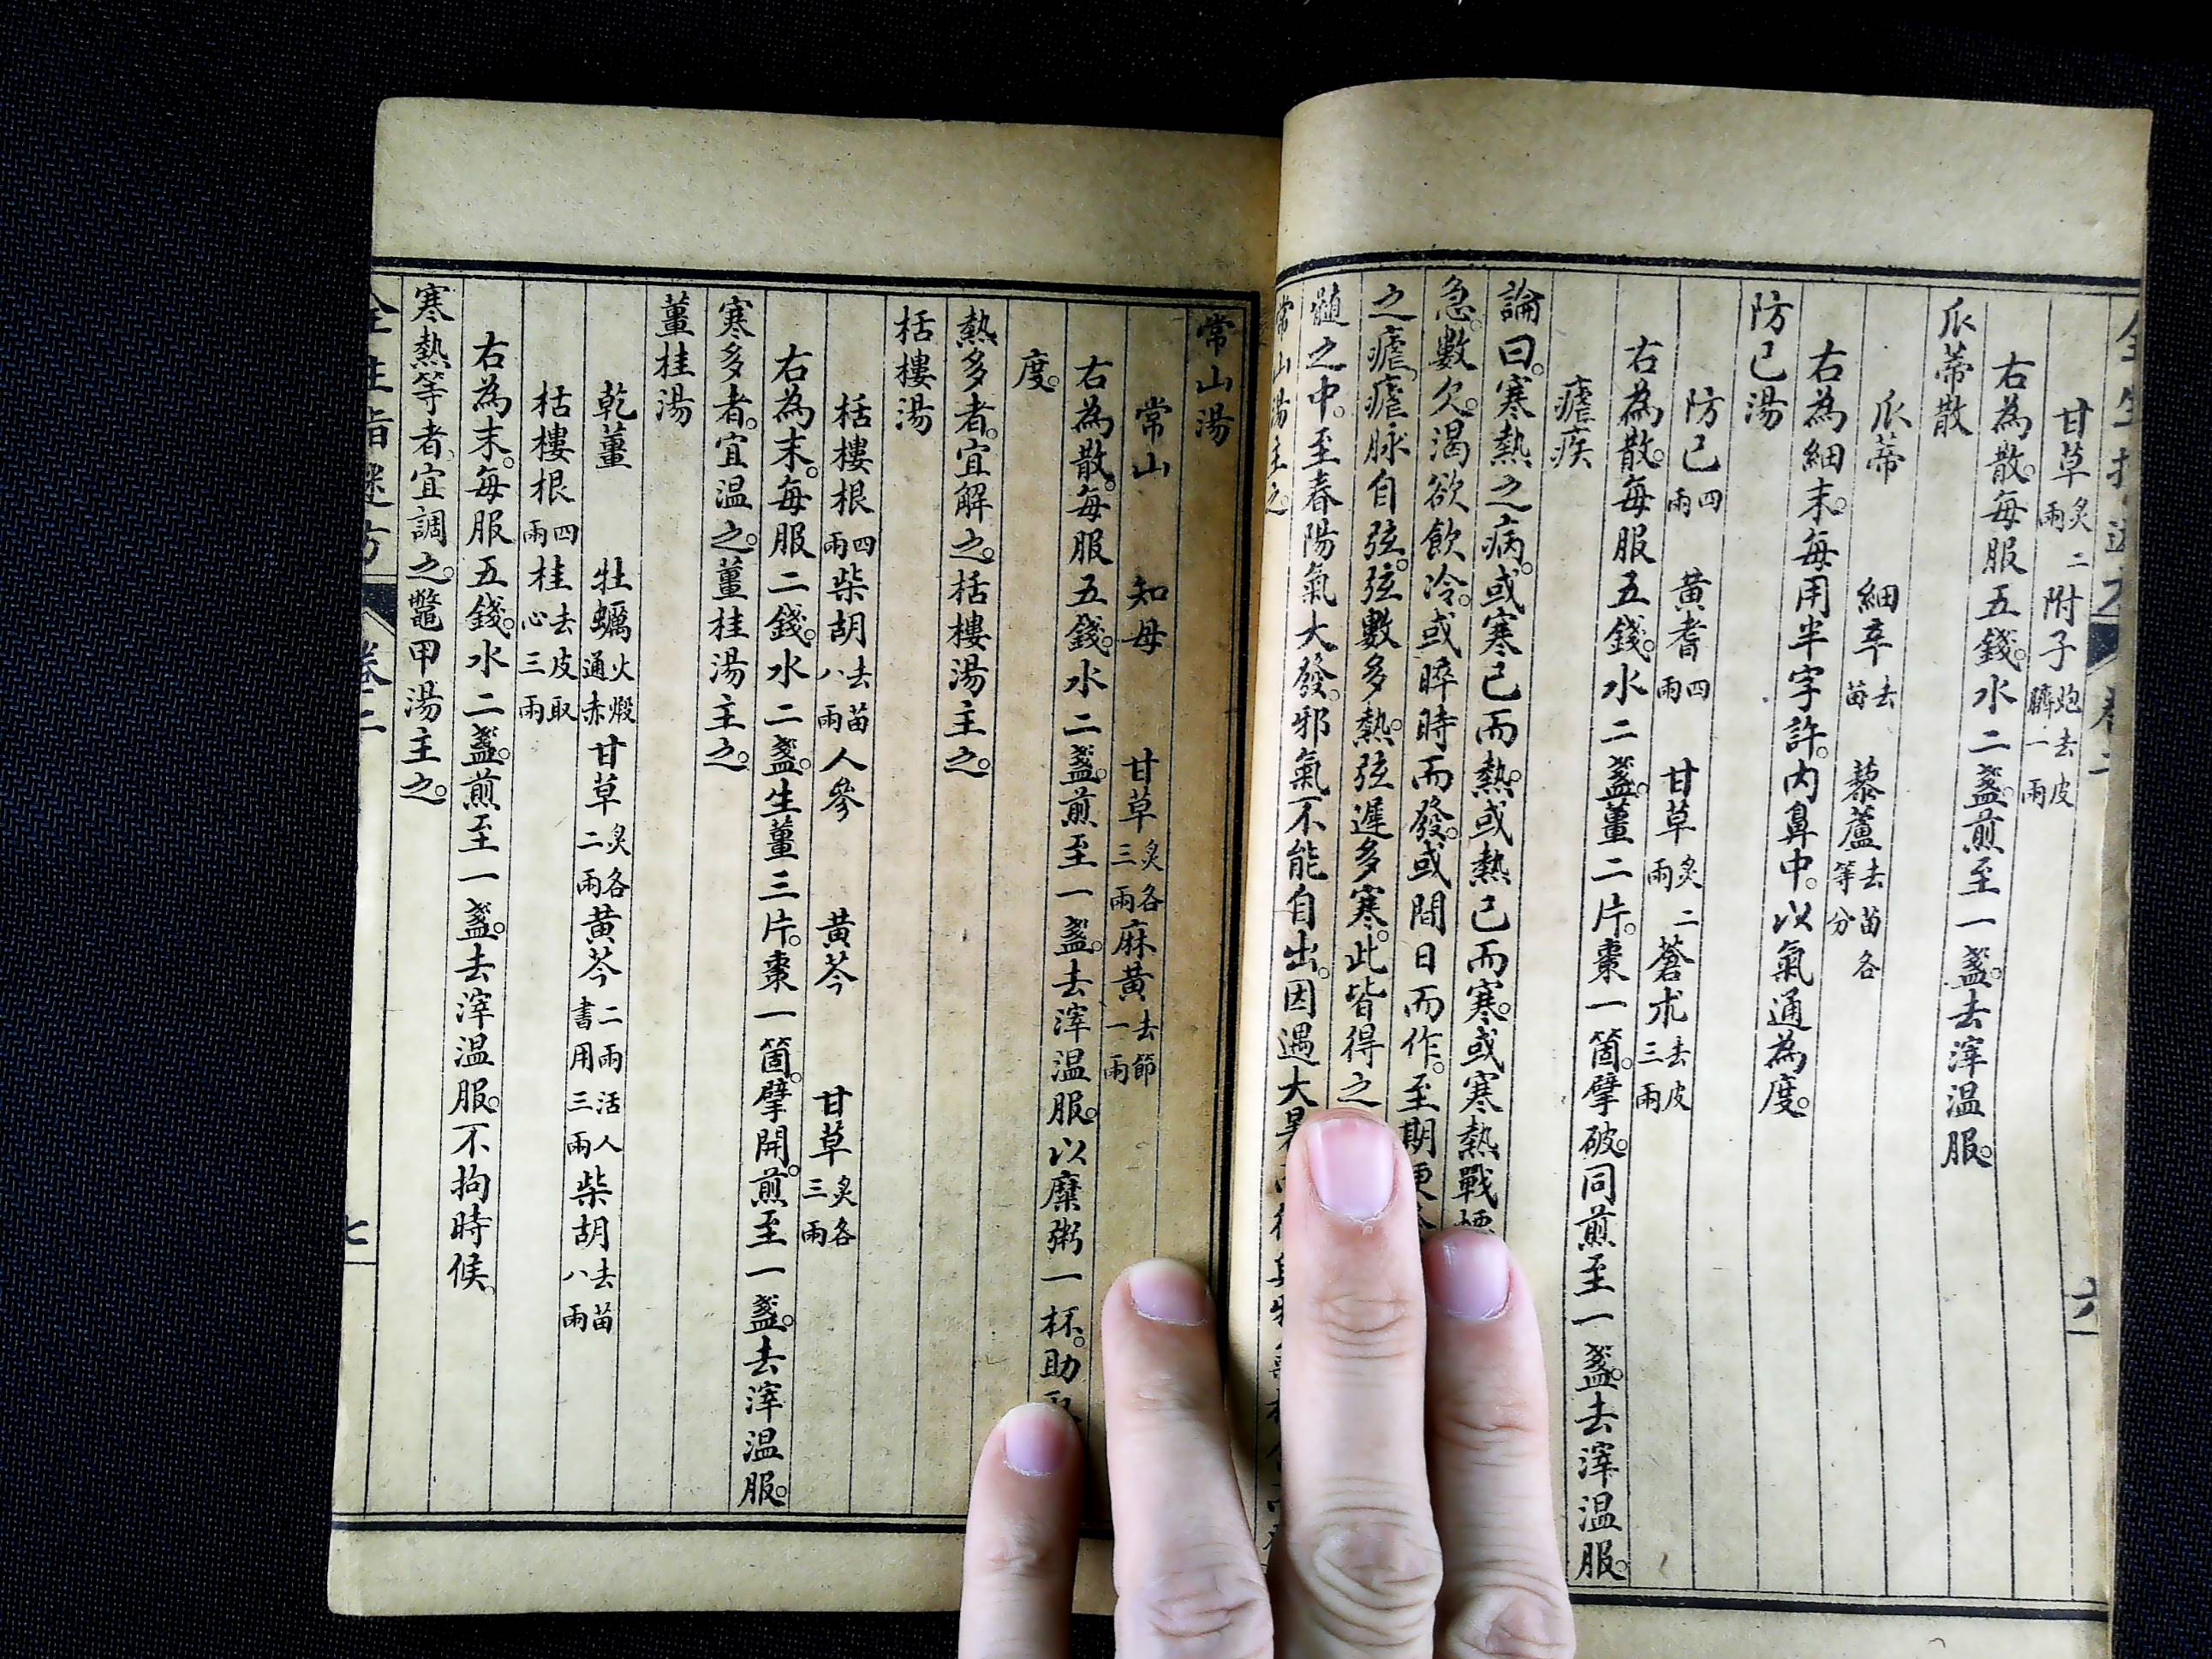 甘草炙二兩附子炮去皮臍一兩
右為散。每服五錢。水二盞。煎至一盞。去滓温服。
瓜蒂散
瓜蒂 細辛去苗 藜蘆去苗各等分
右為細末。每用半字許。内鼻中。以氣通為度。
防己湯
防己四兩 黃耆四兩 甘草炙二兩蒼朮去皮三兩
右為散。每服五錢。水二盞。薑二片。棗一箇。擘破。同煎至一盞。去滓温服。
瘧疾
論曰。寒熱之病。或寒已而熱。或熱已而寒。或寒熱戰
急。數欠。渴欲飲冷。或晬時而發。或間日而作。至期便
之瘧。瘧脉自弦。弦數多熱。弦遲多寒。此皆得之
髓之中。至春陽氣大發。邪氣不能自出。因遇大暑
常山湯主之。
常山湯
常山 知母 甘草炙各三兩麻黃去節一兩
右為散。每服五錢。水二盞。煎至一盞。去滓温服。以糜粥一杯。助
度。
熱多者。宜解之。栝樓湯主之。
栝樓湯
栝樓根四兩柴胡去苗八兩人參 黃芩 甘草炙各三兩
右為末。每服二錢。水二盞。生薑三片。棗一箇。擘開。煎至一盞。去滓温服。
寒多者。宜温之。薑桂湯主之。
薑桂湯
乾薑 牡蠣火煅通赤甘草炙各二兩黃芩二兩活人書用三兩柴胡去苗八兩
栝樓根四兩桂去皮取心三兩
右為末。每服五錢。水二盞。煎至一盞。去滓温服。不拘時候。
寒熱等者。宜調之。鼈甲湯主之。
全生指迷方 卷二 七